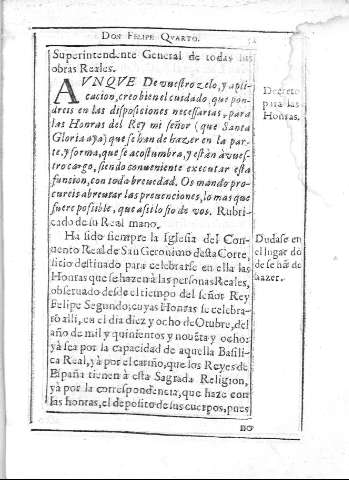 DON FELIPE QVARTO.
Superintendente General de todas sus
obras Reales.
AVNQVE De vuestro zelo, y apli-
cacion, creo bien el cuidado que pon-
dreis en las disposiciones necessarias, para
las Honras del Rey mi señor (que Santa
Gloria aya) que se han de hazer en la par-
te, y forma, que se acostumbra, y està n à vues-
tro cargo, siendo conveniente executar esta
funcion, con toda brevedad. Os mando pro-
cureis abreviar las prevenciones, lo mas que
fuere possible, que assi lo fio de vos. Rubri-
cado de su Real mano.
Decreto
para las
Honras.
Ha sido siempre la Iglesia del Con-
uento Real de San Geronimo desta Corte,
sitio destinado para celebrarse en ella las
Honras que se hazen à las personas Reales,
obseruado desde el tiempo del señor Rey
Felipe Segundo; cuyas Honras se celebra-
rõ alli, en el dia diez y ocho de Otubre, del
año de mil y quinientos y noueta y ocho:
yà sea por la capacidad de aquella Basili-
ca Real, yà por el cariño, que los Reyes de
España tienen à esta Sagrada Religion,
yà por la correspondencia, que haze con
las honras, el deposito de sus cuerpos, pues
Dudase en
el lugar dõ
de se hã de
hazer.